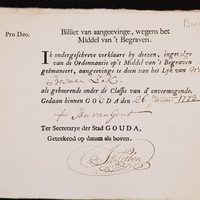 Pro Deo.
Billiet van aangeevinge, wegens het
Middel van 't Begraven.
IK ondergeschreve verklaare by deezen, ingevolge
van de Ordonnantie op 't Middel van 't Begraven
geëmaneert, aangeevinge te doen van het Lyk van
Herman
als gehoorende onder de Classis van d' onvermogende.
Gedaan binnen GOUDA den 26 1778
Jan van Gent
Ter Secretarye der Stad GOUDA,
Geteekend op datum als boven.